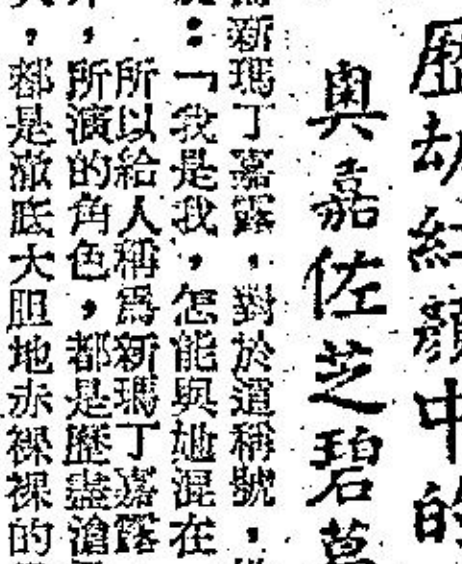 歷劫紅顏中的
奧嘉佐芝碧
新瑪丁嘉露，對於這稱號，
：「我是我，怎能與她混在
所以給人稱爲新瑪丁嘉露
所演的角色，都是歷盡滄
，都是澈底大胆地赤裸裸的